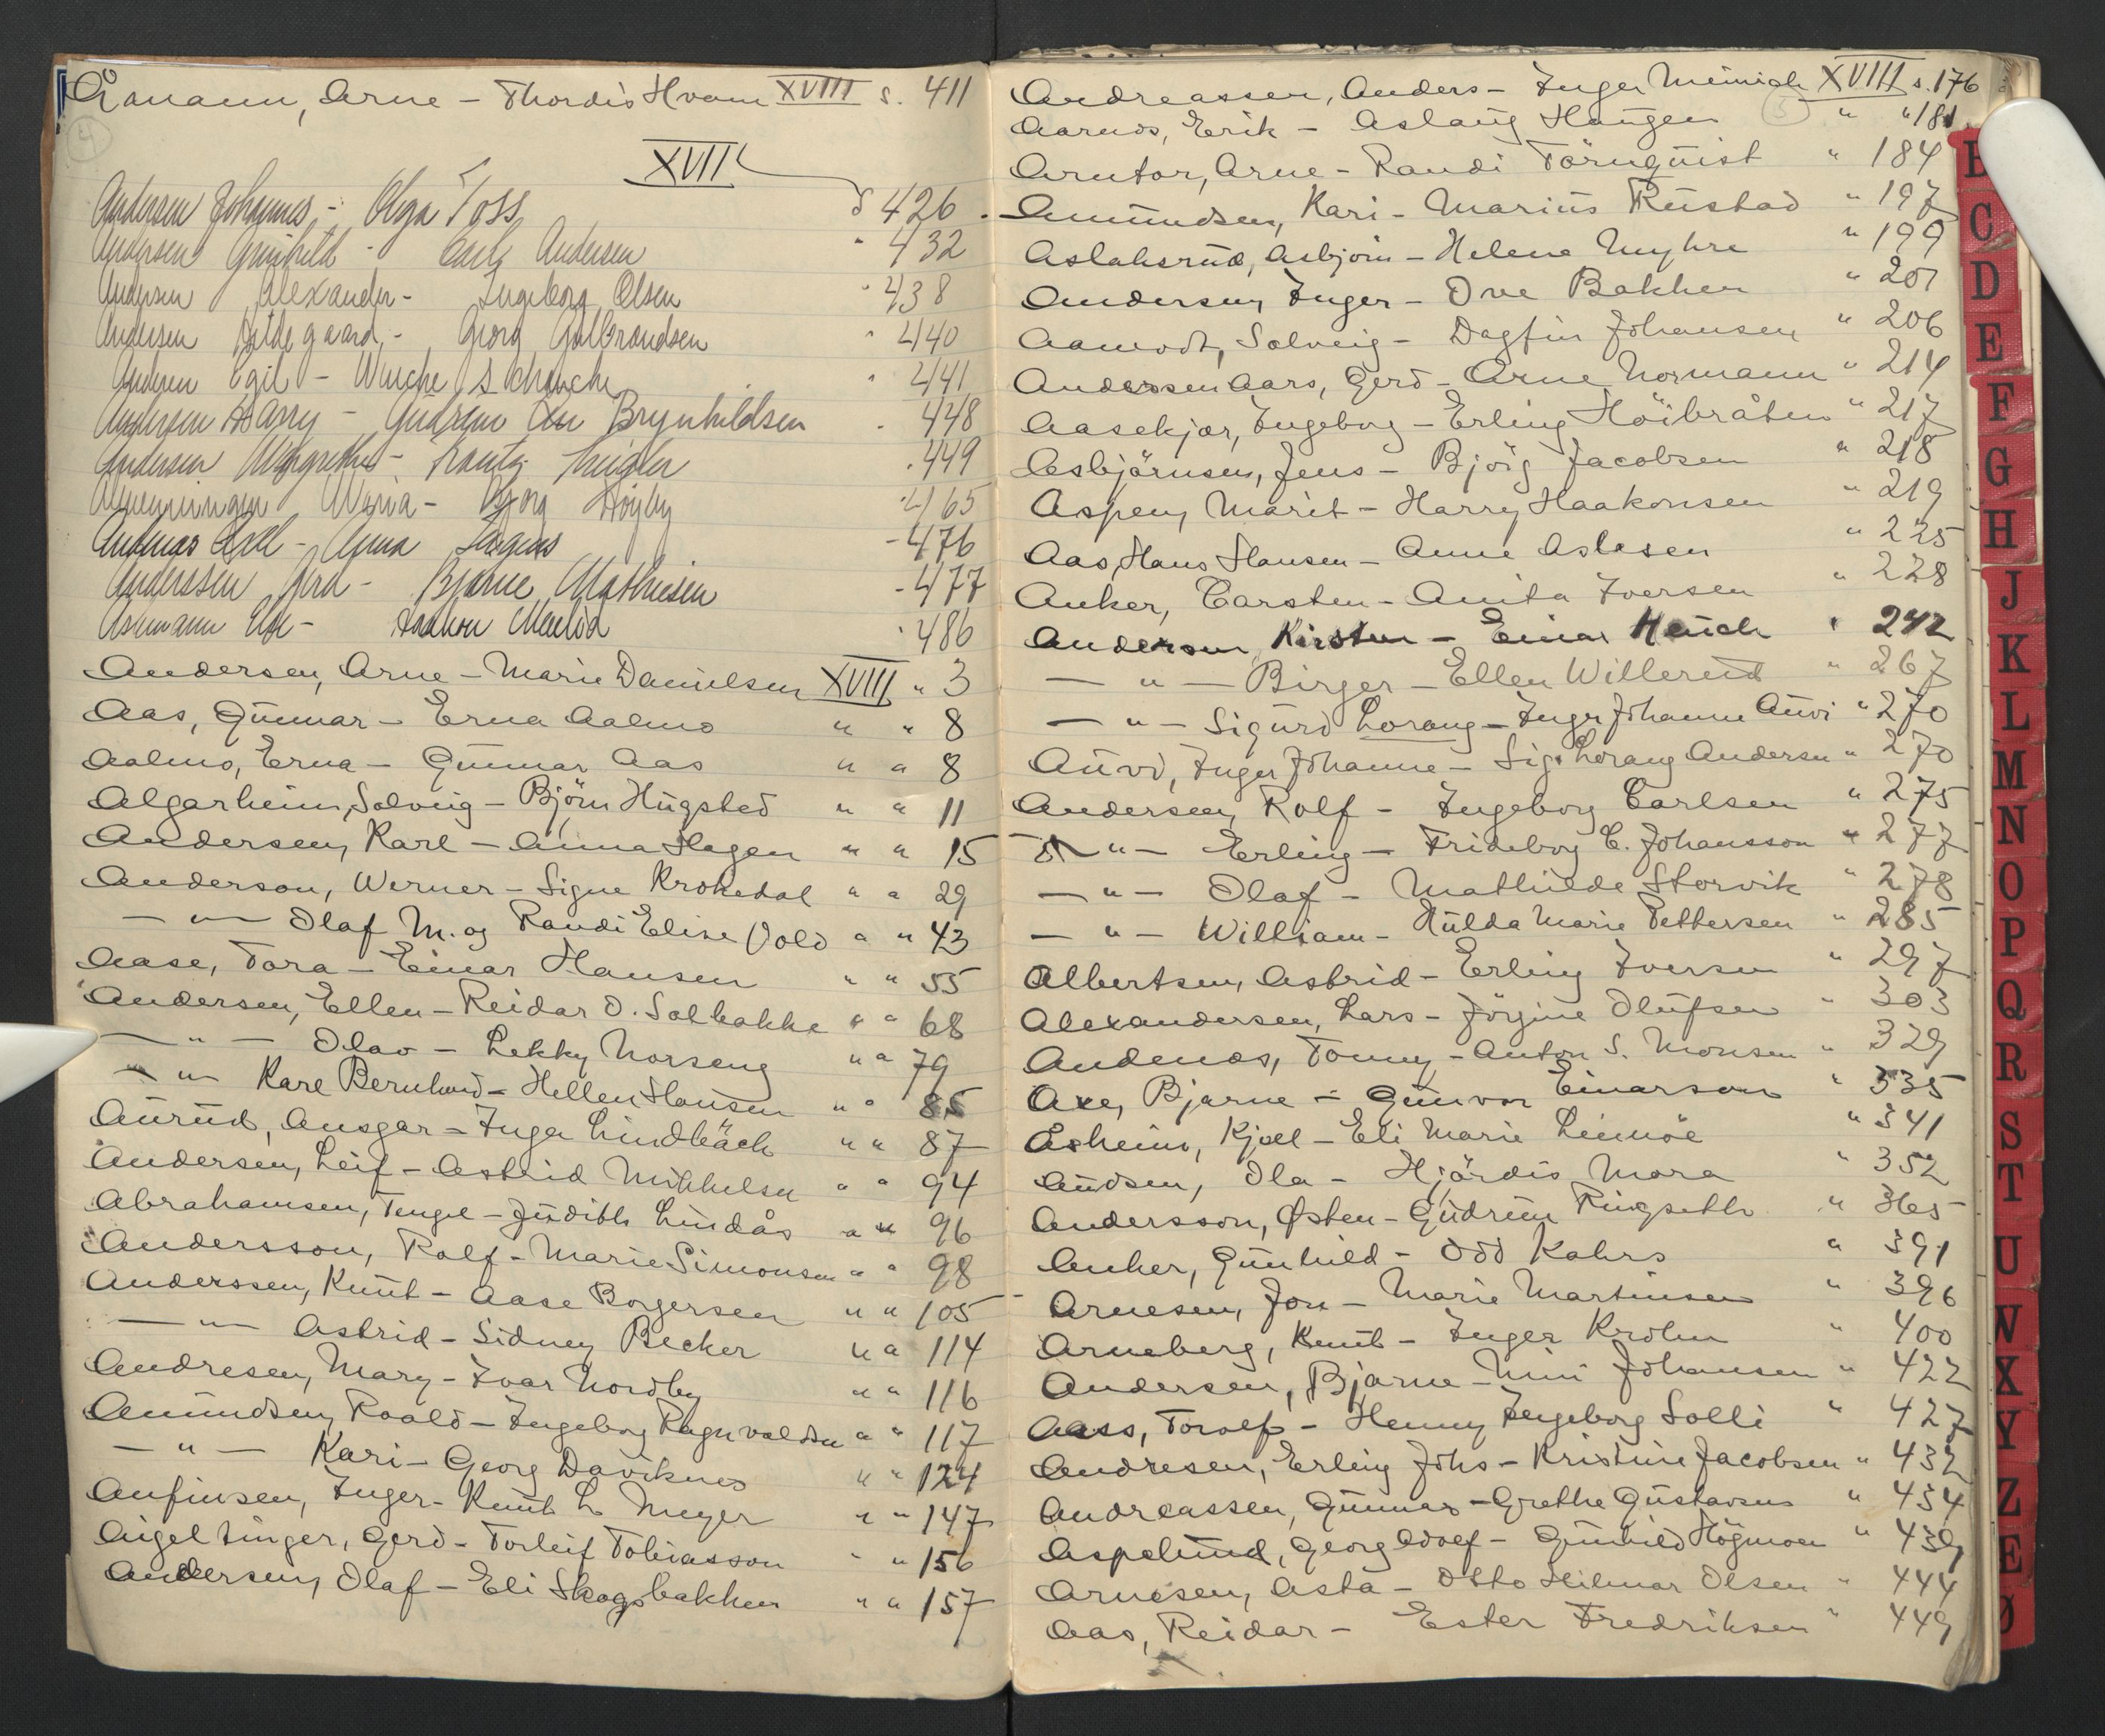 Åmann, Arne - Thordis Hvam XVIII s. 411
4
XVII
Andersen Johannes - Olga Foss s 426
Andersen Gunhild - Carl Andersen " 432
Andersen Alexander - Ingeborg Olsen " 438
Andersen Hildegaard - Georg Gulbrandsen " 440
Andersen Egil - Wenche Schouche " 441
Andersen Harry - Gudrun Brynhildsen " 448
Andersen Margrethe - 449
Maria - Georg Høyby " 465
Andenæs - Anna - 476
Anderssen Gerd - Bjarne Mathiesen - 477
Assmann Else - Haakon " 486
Andersen, Arne - Marie Danielsen XVIII " 3
Aas, Gunnar - Erna Aalmo " " 8
Aalmo, Erna - Gunnar Aas " " 8
Algarheim, Solveig - Björn Hugsted " " 11
Andersen, Karl - Anna Hagen " " 15
Anderson, Werner - Signe Krokedal " " 29
— " — Olaf M. og Randi Elise Vold " " 43
Aase, Tora - Einar Hansen " " 55
Andersen, Ellen - Reidar O. Solbakke " " 68
— " — Olav - Lekky Norseng " " 79
— " — Karl Bernhard - Hellen Hansen " " 85
Aurud, Ansgar - Inger Lindbäck " " 87
Andersen, Leif - Astrid Mikkelsen " " 94
Abrahamsen, Tengel - Judith Lindås " " 96
Andersson, Rolf - Marie Simonsen " " 98
Anderssen, Knut - Aase Borgersen " " 105
— " — Astrid - Sidney Becker " " 114
Andresen, Mary - Ivar Nordby " " 116
Amundsen, Roald - Ingeborg Ragnvaldsen " " 117
— " — Kari - Georg Daviknes " " 124
Anfinsen, Inger - Knut L. Meyer " " 147
Aigeltinger, Gerd - Torleif Tobiasson " " 156
Andersen, Olaf - Eli Skogsbakken " " 157
Andreassen, Anders - Inger Meinich XVIII s. 176
5
Aarnes, Erik - Aslaug Haugen " " 181
Arntor, Arne - Randi Törnquist " 184
Amundsen, Kari - Marius Rustad " 197
Aslaksrud, Asbjörn - Helene Myhre " 199
Andersen, Inger - Ove Bakken " 201
Aamodt, Solveig - Dagfin Johansen " 206
Anderssen Aars, Gerd - Arne Normann " 214
Aasekjær, Ingeborg - Erling Höibråten " 217
Asbjörnsen, Jens - Björg Jacobsen " 218
Aspen, Marit - Harry Haakonsen " 219
Aas, Hans Hansen - Anne Aslesen " 225
Anker, Carsten - Anita Iversen " 228
Andersen, Kirsten - Einar Hauch " 242
— " — Birger - Ellen Willerud " 267
— " — Sigurd Lorang - Inger Johanne Auvi " 270
Auvi, Inger Johanne - Sig. Lorang Andersen " 270
Andersen, Rolf - Ingeborg Carlsen " 275
— " — Erling - Frideborg C. Johansson " 277
— " — Olaf - Mathilde Storvik " 278
— " — William - Hulda Marie Pettersen " 285
Albertsen, Astrid - Erling Iversen " 297
Alexandersen, Lars - Jörgine Olufsen " 303
Andenæs, Tonny - Anton S. Monsen " 329
Axe, Bjarne - Gunvor Einarson " 335
Asheim, Kjell - Eli Marie Leinöe " 341
Audsen, Ola - Hjördis Mora " 352
Andersson, Østen - Gudrun Ringseth " 365
Anker, Gunhild - Odd Kahrs " 391
Arnesen, Jon - Marie Martinsen " 396
Arneberg, Knut - Inger Krohn " 400
Andersen, Bjarne - Nini Johansen " 422
Aass, Torolf - Henny Ingeborg Solli " 427
Andresen, Erling Johs - Kristine Jacobsen " 432
Andreassen, Gunnar - Grethe Gustavsen " 434
Aspelund, Georg Adolf - Gunhild Högmoen " 439
Arnesen, Asta - Otto Hilmar Olsen " 444
Aas, Reidar - Ester Fredriksen " 449
C
D
E
F
G
H
J
K
L
M
N
O
P
Q
R
S
T
U
W
X
Y
Z
Æ
Ø